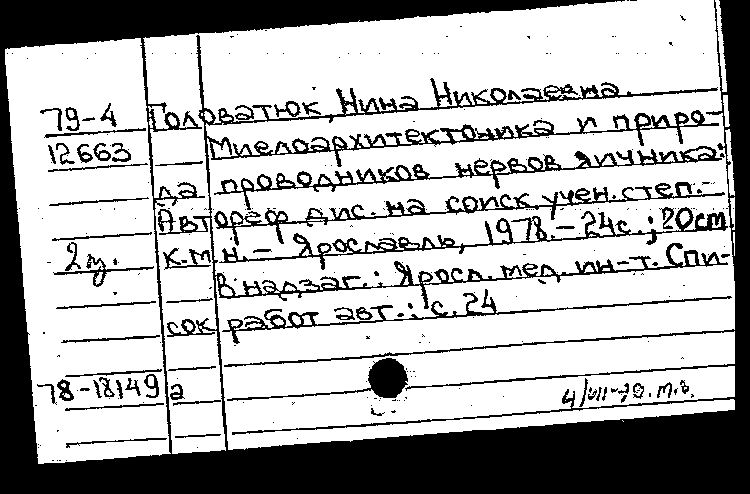 79-4 Головатюк, Нина Николаевна.
12663 Миелоархитектоника и приро-
да проводников нервов яичника:
Автореф дис. на соиск. учен. степ.-
2 к.м.н. - Ярославль, 1978. - 24с.; 20cm
В надзаг.: Яросл. мед. ин-т. Спи-
сок работ авт.: с. 24
78-18149 а